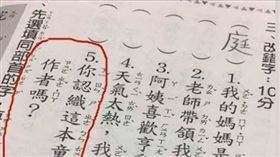 三、改錯字：10分
庭
（ ）1.我的媽媽是
（ ）2.老師帶領我
（ ）3.阿姨喜歡享
（ ）4.天氣太熱，我
（ ）5.你認織這本童
作者嗎？
先選填同部首的字，